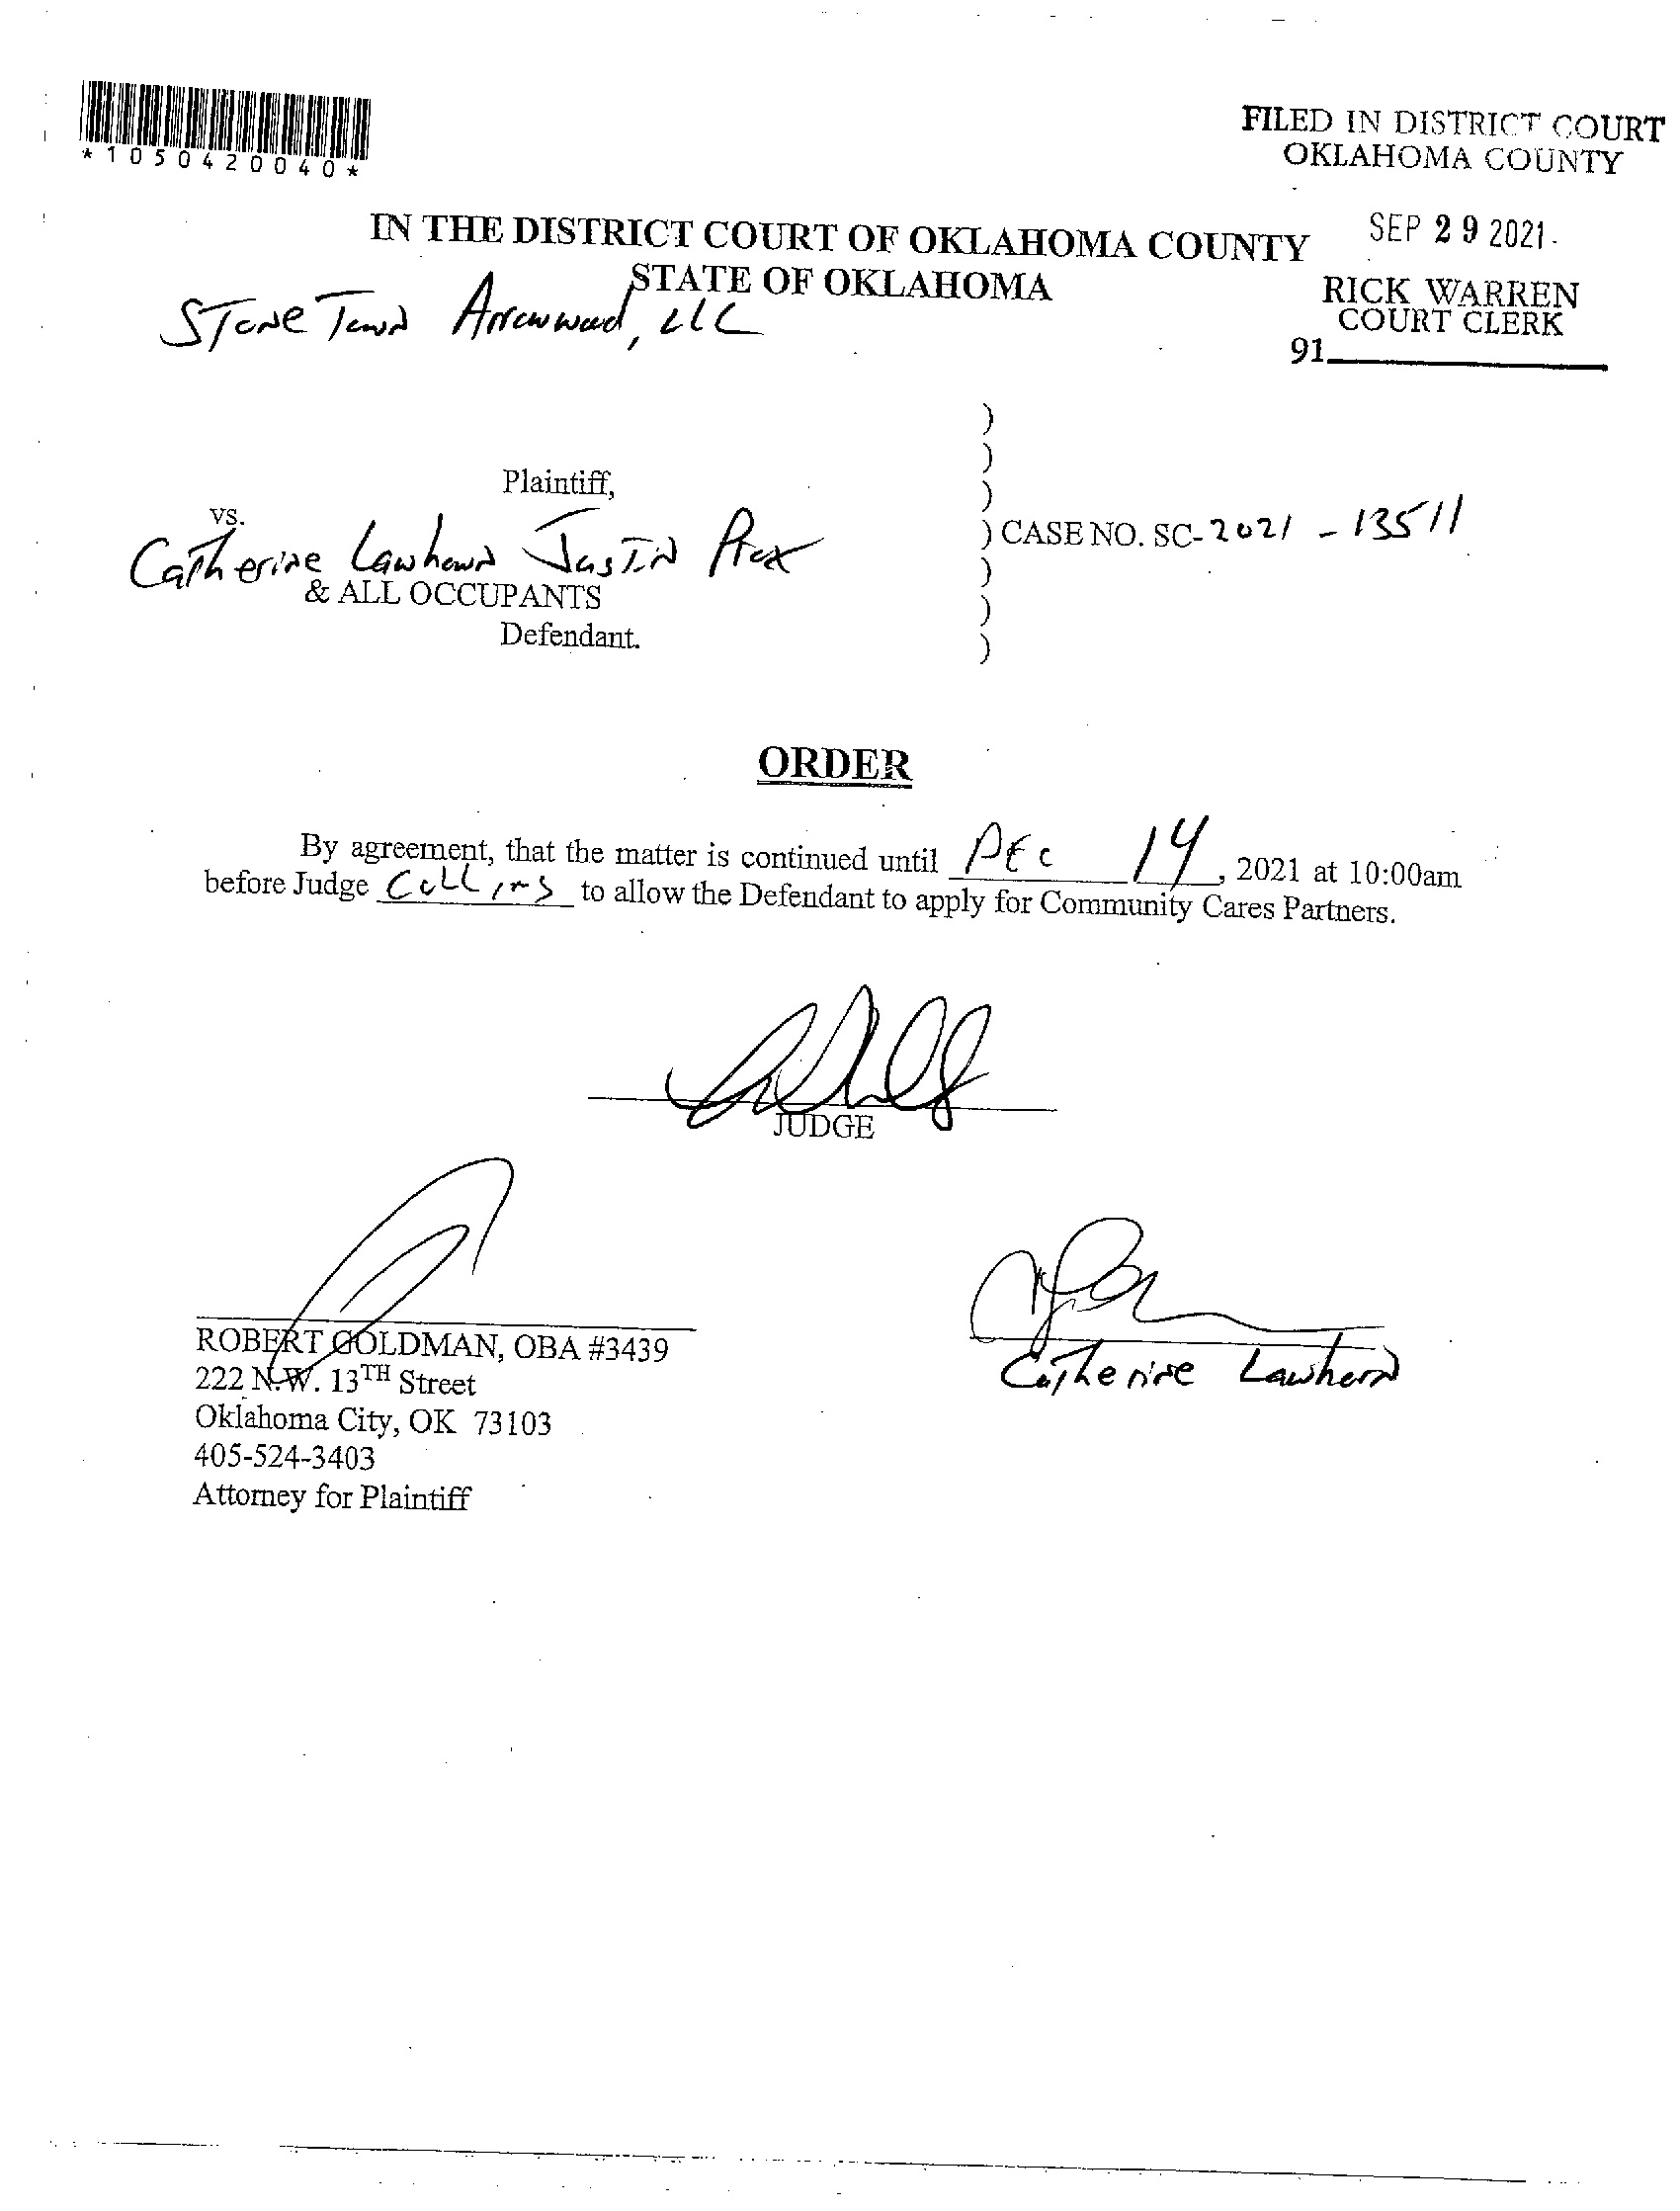 *1050420040*
FILED IN DISTRICT COURT
OKLAHOMA COUNTY
SEP 29 2021
RICK WARREN
COURT CLERK
91
IN THE DISTRICT COURT OF OKLAHOMA COUNTY
STATE OF OKLAHOMA
Stone Town Arrowwood, LLC
Plaintiff,
vs.
Catherine Lawhorn Justin
& ALL OCCUPANTS
Defendant.
)
)
)
) CASE NO. SC-2021 - 13511
)
)
)
ORDER
By agreement, that the matter is continued until DEC 14, 2021 at 10:00am
before Judge Collins to allow the Defendant to apply for Community Cares Partners.
JUDGE
ROBERT GOLDMAN, OBA #3439
222 N.W. 13TH Street
Oklahoma City, OK 73103
405-524-3403
Attorney for Plaintiff
Catherine Lawhorn